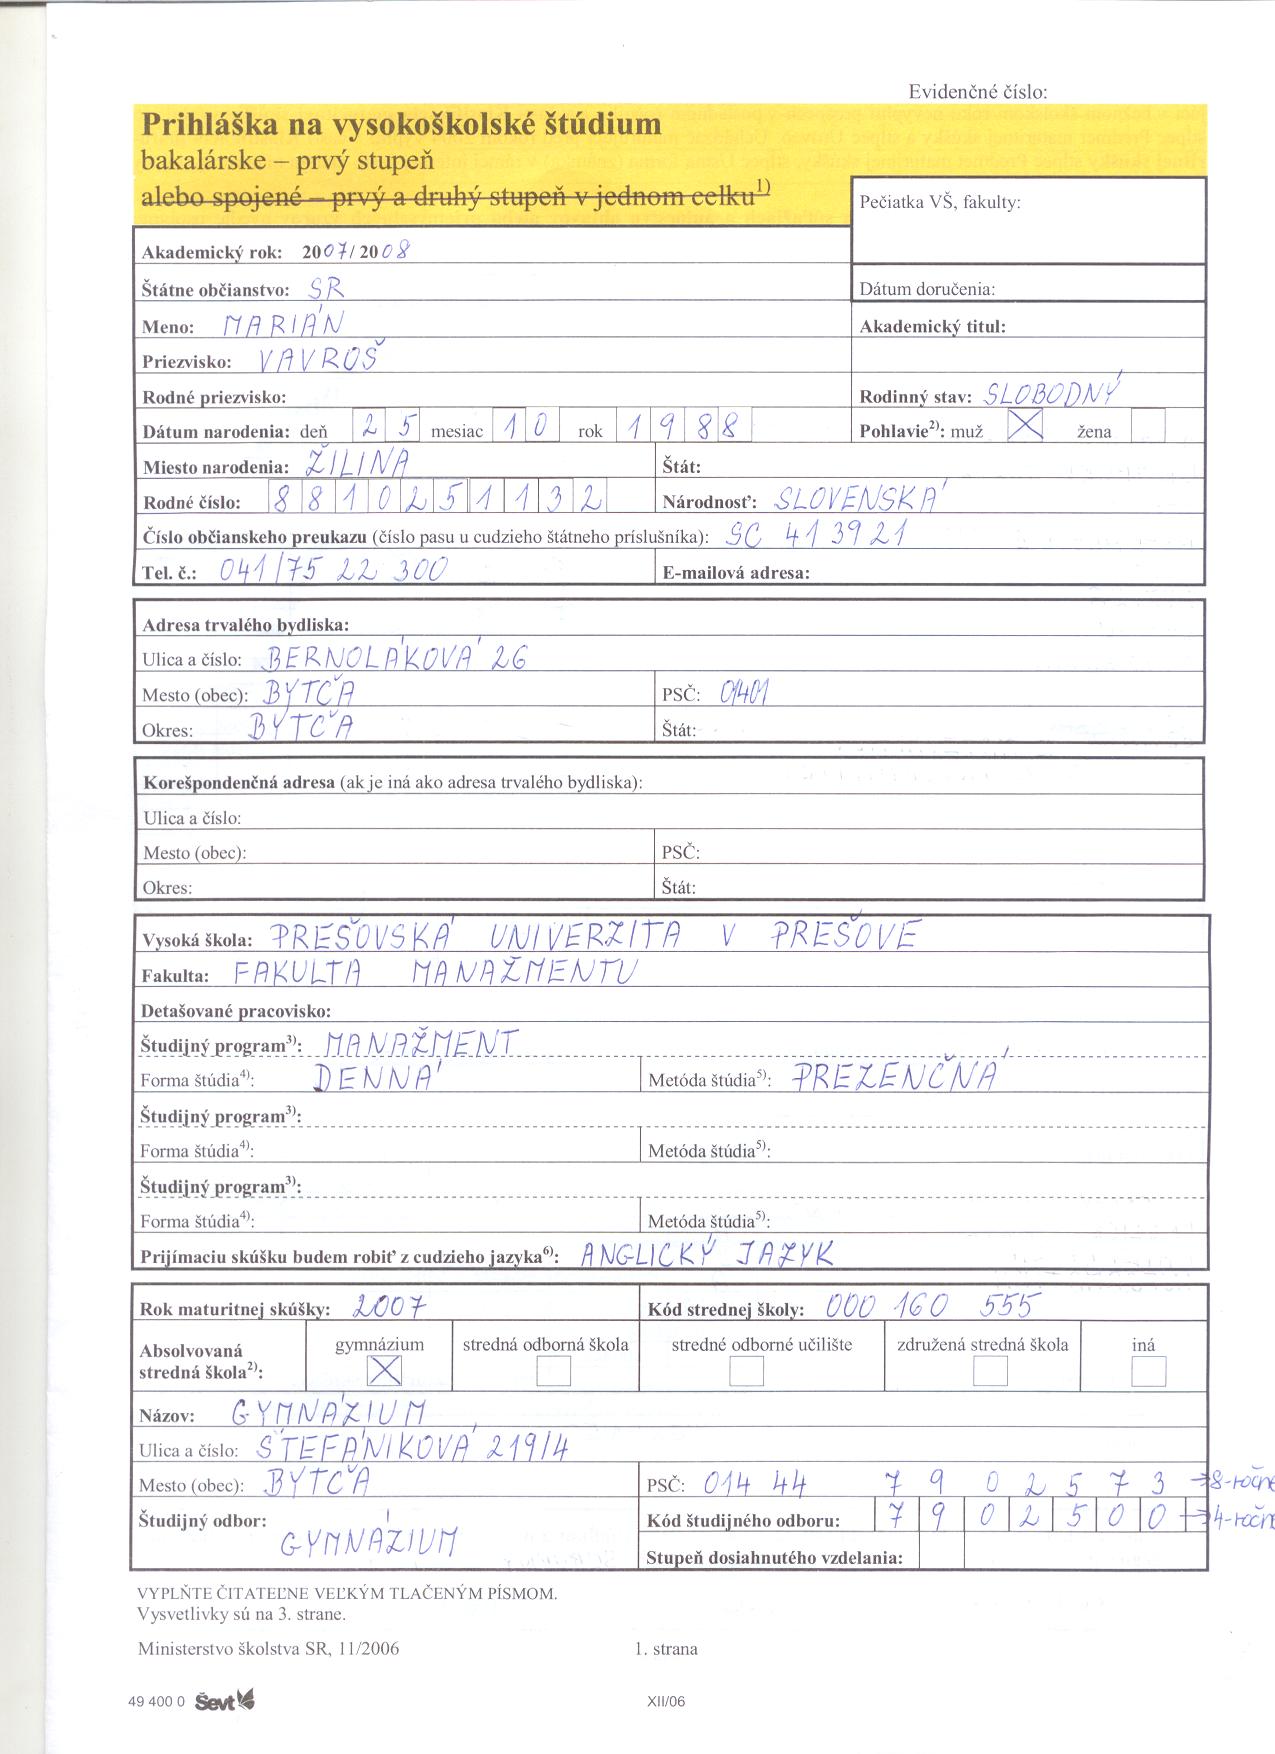 Evidenčné číslo:
Prihláška na vysokoškolské štúdium
bakalárske – prvý stupeň
alebo spojené – prvý a druhý stupeň v jednom celku1)
Pečiatka VŠ, fakulty:
Akademický rok: 2007/2008
Štátne občianstvo: SR
Dátum doručenia:
Meno: MARIÁN
Akademický titul:
Priezvisko: VAVROŠ
Rodné priezvisko:
Rodinný stav: SLOBODNÝ
Dátum narodenia: deň 25 mesiac 10 rok 1988
Pohlavie2): muž X žena
Miesto narodenia: ŽILINA
Štát:
Rodné číslo: 8810251132
Národnosť: SLOVENSKÁ
Číslo občianskeho preukazu (číslo pasu u cudzieho štátneho príslušníka): SC 413921
Tel. č.: 041/75 22 300
E-mailová adresa:
Adresa trvalého bydliska:
Ulica a číslo: BERNOLÁKOVÁ 26
Mesto (obec): BYTČA
PSČ: 01401
Okres: BYTČA
Štát:
Korešpondenčná adresa (ak je iná ako adresa trvalého bydliska):
Ulica a číslo:
Mesto (obec):
PSČ:
Okres:
Štát:
Vysoká škola: PREŠOVSKÁ UNIVERZITA V PREŠOVE
Fakulta: FAKULTA MANAŽMENTU
Detašované pracovisko:
Študijný program3): MANAŽMENT
Forma štúdia4): DENNÁ
Metóda štúdia5): PREZENČNÁ
Študijný program3):
Forma štúdia4):
Metóda štúdia5):
Študijný program3):
Forma štúdia4):
Metóda štúdia5):
Prijímaciu skúšku budem robiť z cudzieho jazyka6): ANGLICKÝ JAZYK
Rok maturitnej skúšky: 2007
Kód strednej školy: 000 160 555
Absolvovaná
stredná škola2):
gymnázium X
stredná odborná škola
stredné odborné učilište
združená stredná škola
iná
Názov: GYMNÁZIUM
Ulica a číslo: ŠTEFÁNIKOVÁ 219/4
Mesto (obec): BYTČA
PSČ: 014 44
7902573 → 8-ročné
Študijný odbor: GYMNÁZIUM
Kód študijného odboru: 7902500 → 4-ročné
Stupeň dosiahnutého vzdelania:
VYPLŇTE ČITATEĽNE VEĽKÝM TLAČENÝM PÍSMOM.
Vysvetlivky sú na 3. strane.
Ministerstvo školstva SR, 11/2006
1. strana
49 400 0 Ševt
XII/06